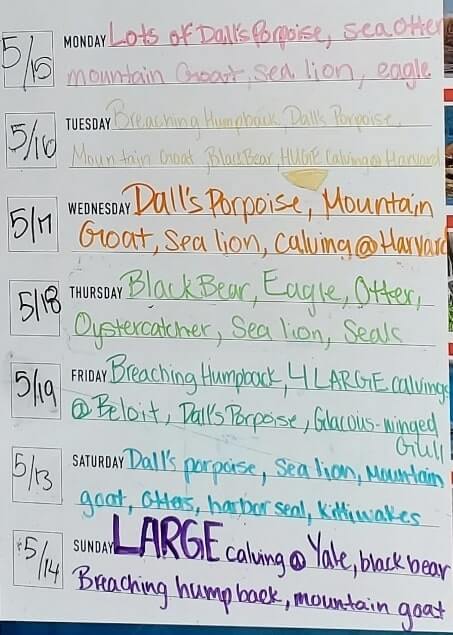 5/15 MONDAY Lots of Dall's Porpoise, sea otter
mountain Goat, sea lion, eagle
5/16 TUESDAY Breaching Humpback, Dall's Porpoise,
Mountain Goat, Black Bear, HUGE Calving @ Harvard
5/17 WEDNESDAY Dall's Porpoise, Mountain
Goat, Sea lion, Calving @ Harvard
5/18 THURSDAY Black Bear, Eagle, Otter,
Oystercatcher, Sea lion, Seals
5/19 FRIDAY Breaching Humpback, 4 LARGE calvings
@ Beloit, Dall's Porpoise, Glacous-winged
Gull
5/13 SATURDAY Dall's porpoise, Sea lion, Mountain
goat, otters, harbor seal, kittiwakes
5/14 SUNDAY LARGE calving @ Yale, black bear
Breaching humpback, mountain goat